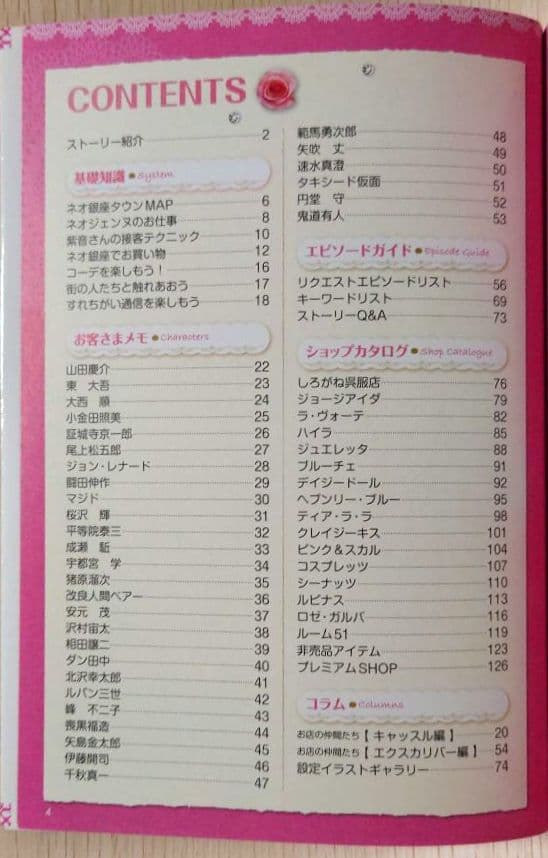 CONTENTS
ストーリー紹介 2
基礎知識 System
ネオ銀座タウンMAP 6
ネオジェンヌのお仕事 8
紫音さんの接客テクニック 10
ネオ銀座でお買い物 12
コーデを楽しもう！ 16
街の人たちと触れあおう 17
すれちがい通信を楽しもう 18
お客さまメモ Characters
山田慶介 22
東　大吾 23
大西　順 24
小金田照美 25
証城寺京一郎 26
尾上松五郎 27
ジョン・レナード 28
闘田伸作 29
マジド 30
桜沢　輝 31
平等院泰三 32
成瀬　 33
宇都宮　学 34
猪原溜次 35
改良人間ベアー 36
安元　茂 37
沢村宙太 38
相田譲二 39
ダン田中 40
北沢幸太郎 41
ルパン三世 42
峰　不二子 43
喪黒福造 44
矢島金太郎 45
伊藤開司 46
千秋真一 47
範馬勇次郎 48
矢吹　丈 49
速水真澄 50
タキシード仮面 51
円堂　守 52
鬼道有人 53
エピソードガイド Episode Guide
リクエストエピソードリスト 56
キーワードリスト 69
ストーリーQ&A 73
ショップカタログ Shop Catalogue
しろがね呉服店 76
ジョージアイダ 79
ラ・ヴォーテ 82
ハイラ 85
ジュエレッタ 88
ブルーチェ 91
デイジードール 92
ヘブンリー・ブルー 95
ティア・ラ・ラ 98
クレイジーキス 101
ピンク＆スカル 104
コスプレッツ 107
シーナッツ 110
ルピナス 113
ロゼ・ガルバ 116
ルーム51 119
非売品アイテム 123
プレミアムSHOP 126
コラム Columns
お店の仲間たち【キャッスル編】 20
お店の仲間たち【エクスカリバー編】 54
設定イラストギャラリー 74
4